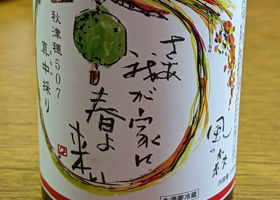 さあ
我が家に
春よ
来い
秋津穂507
真中採り
風の森
要冷蔵